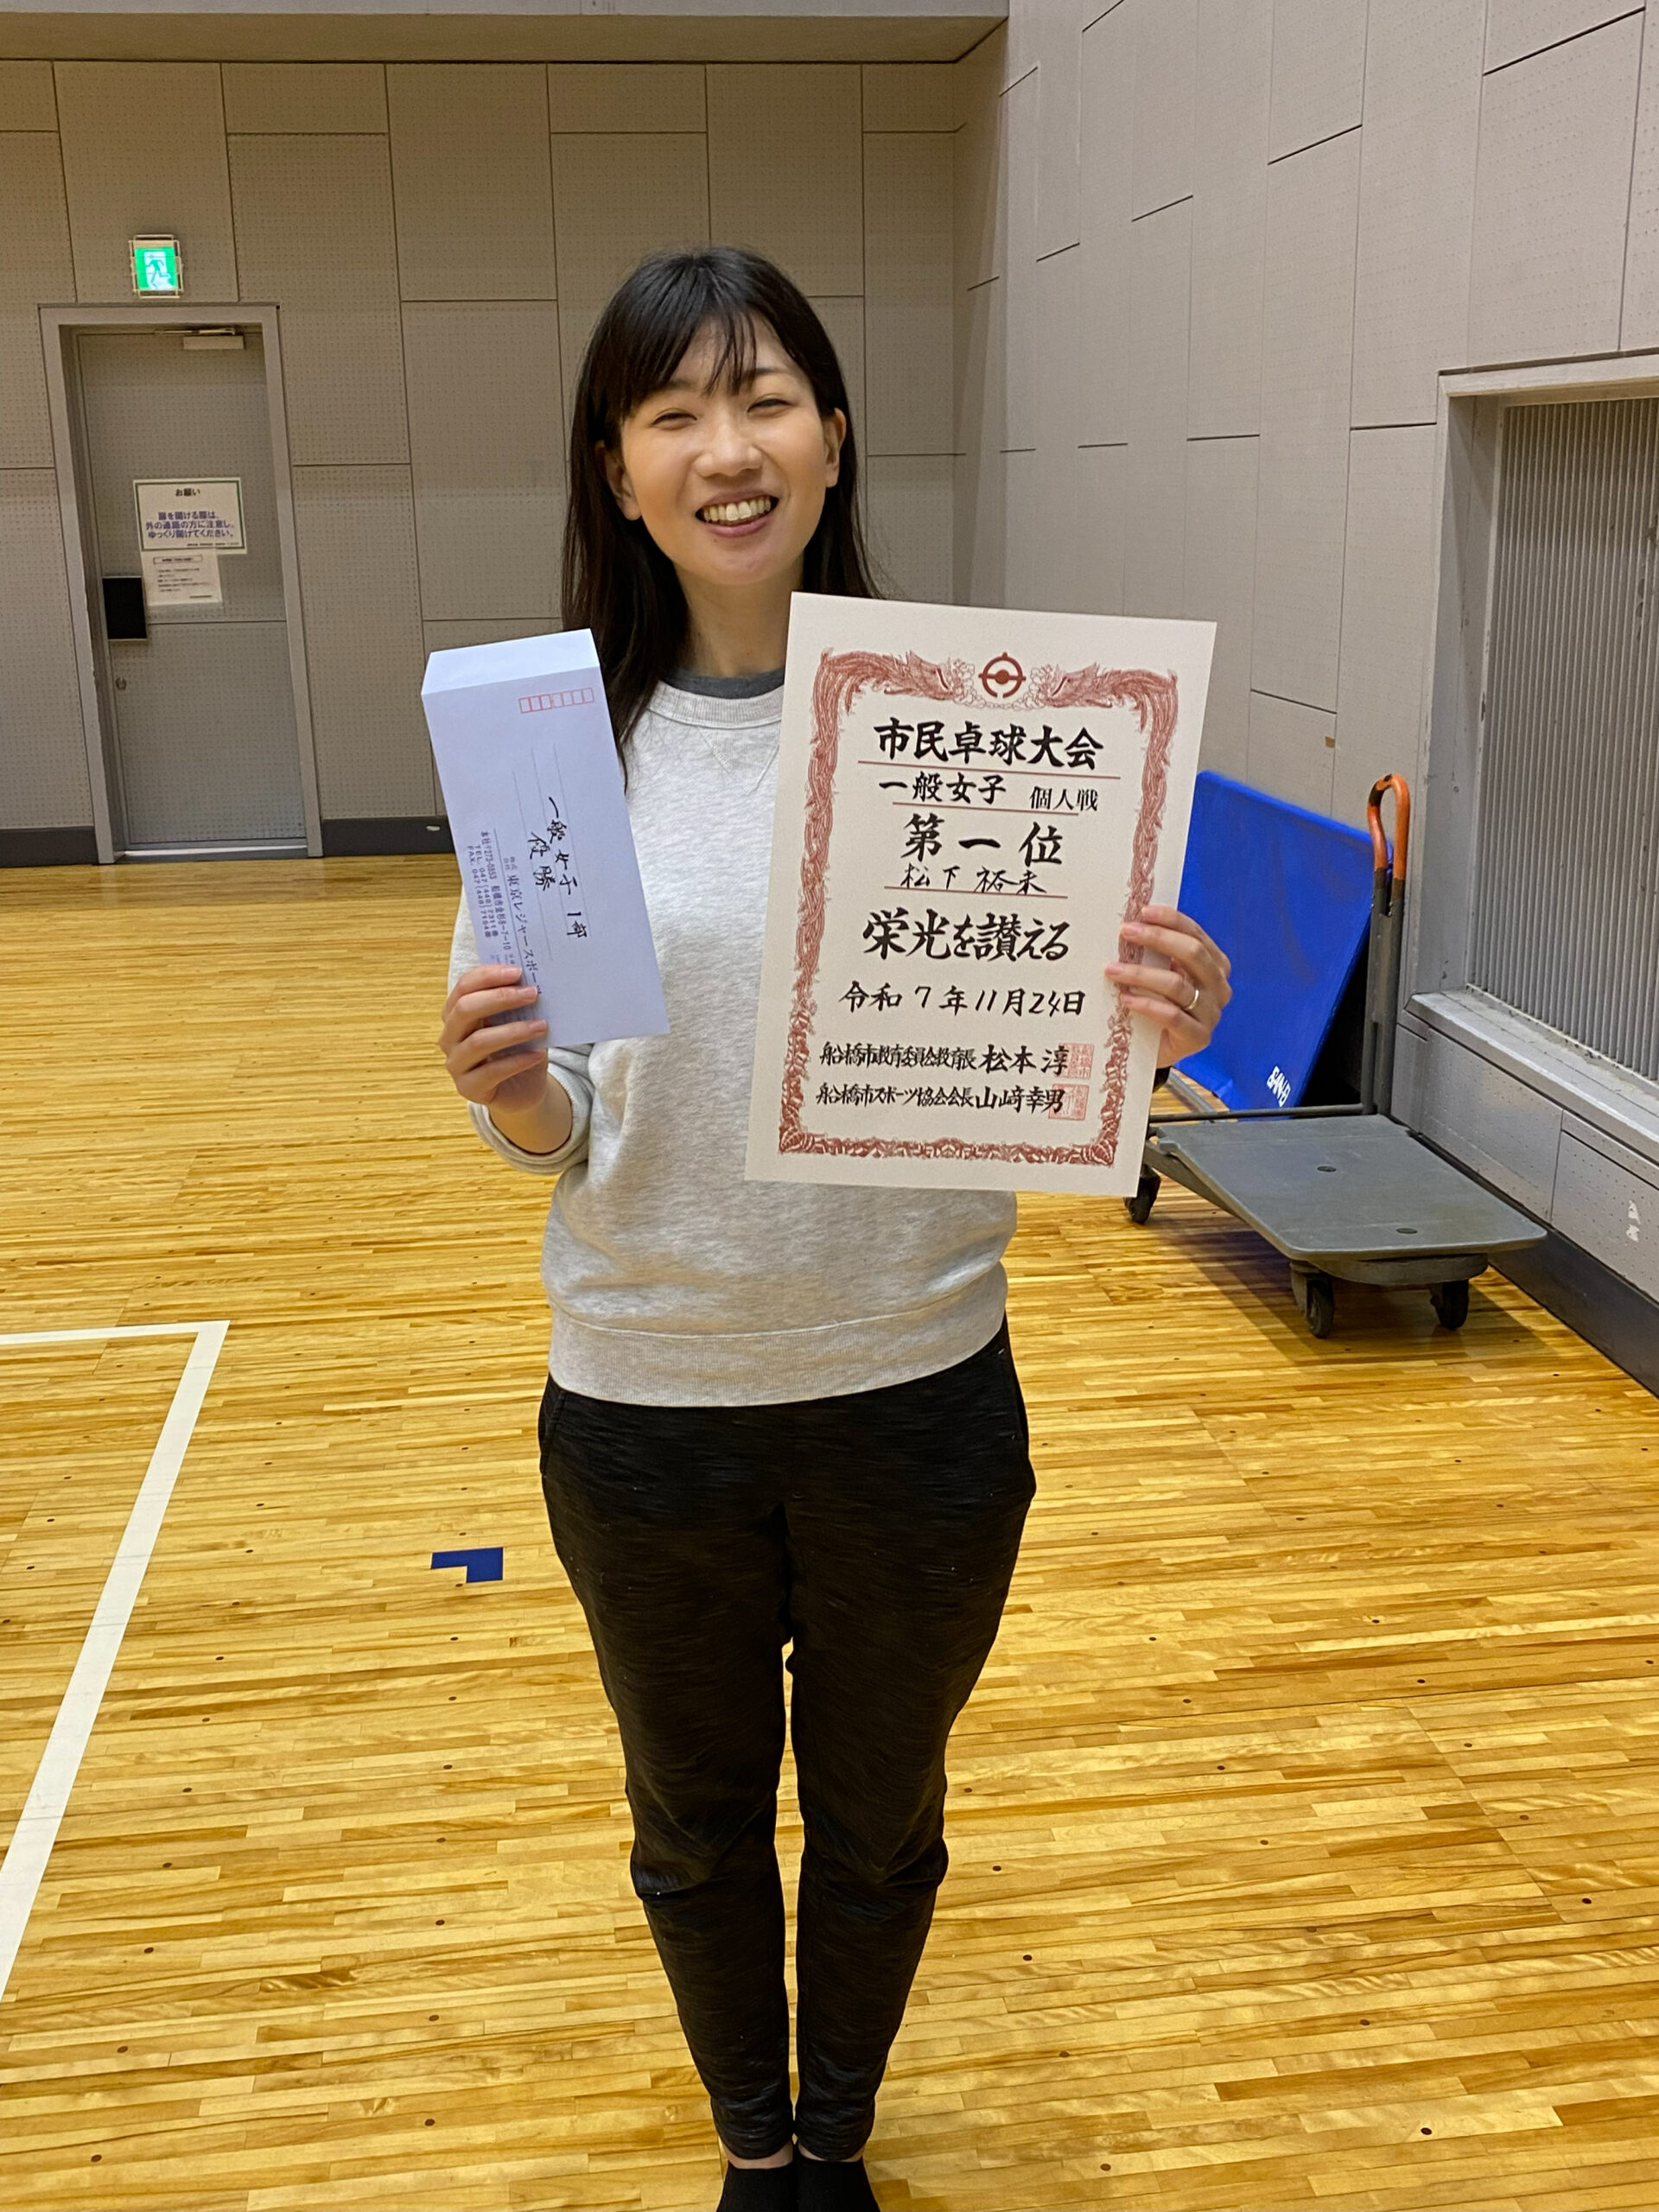 お願い
扉を開ける際は、
外の通路の方に注意し、
ゆっくり開けてください。
一般女子 1部
優勝
株式会社 東京レジャースポーツ
TEL 047(448)7311番
FAX 047(448)7184番
市民卓球大会
一般女子 個人戦
第一位
松下 裕未
栄光を讃える
令和7年11月24日
船橋市教育委員会教育長 松本 淳
船橋市スポーツ協会会長 山﨑幸男
SAN-EI